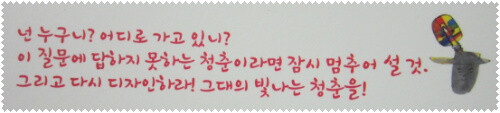 넌 누구니? 어디로 가고 있니?
이 질문에 답하지 못하는 청춘이라면 잠시 멈추어 설 것.
그리고 다시 디자인하라! 그대의 빛나는 청춘을!